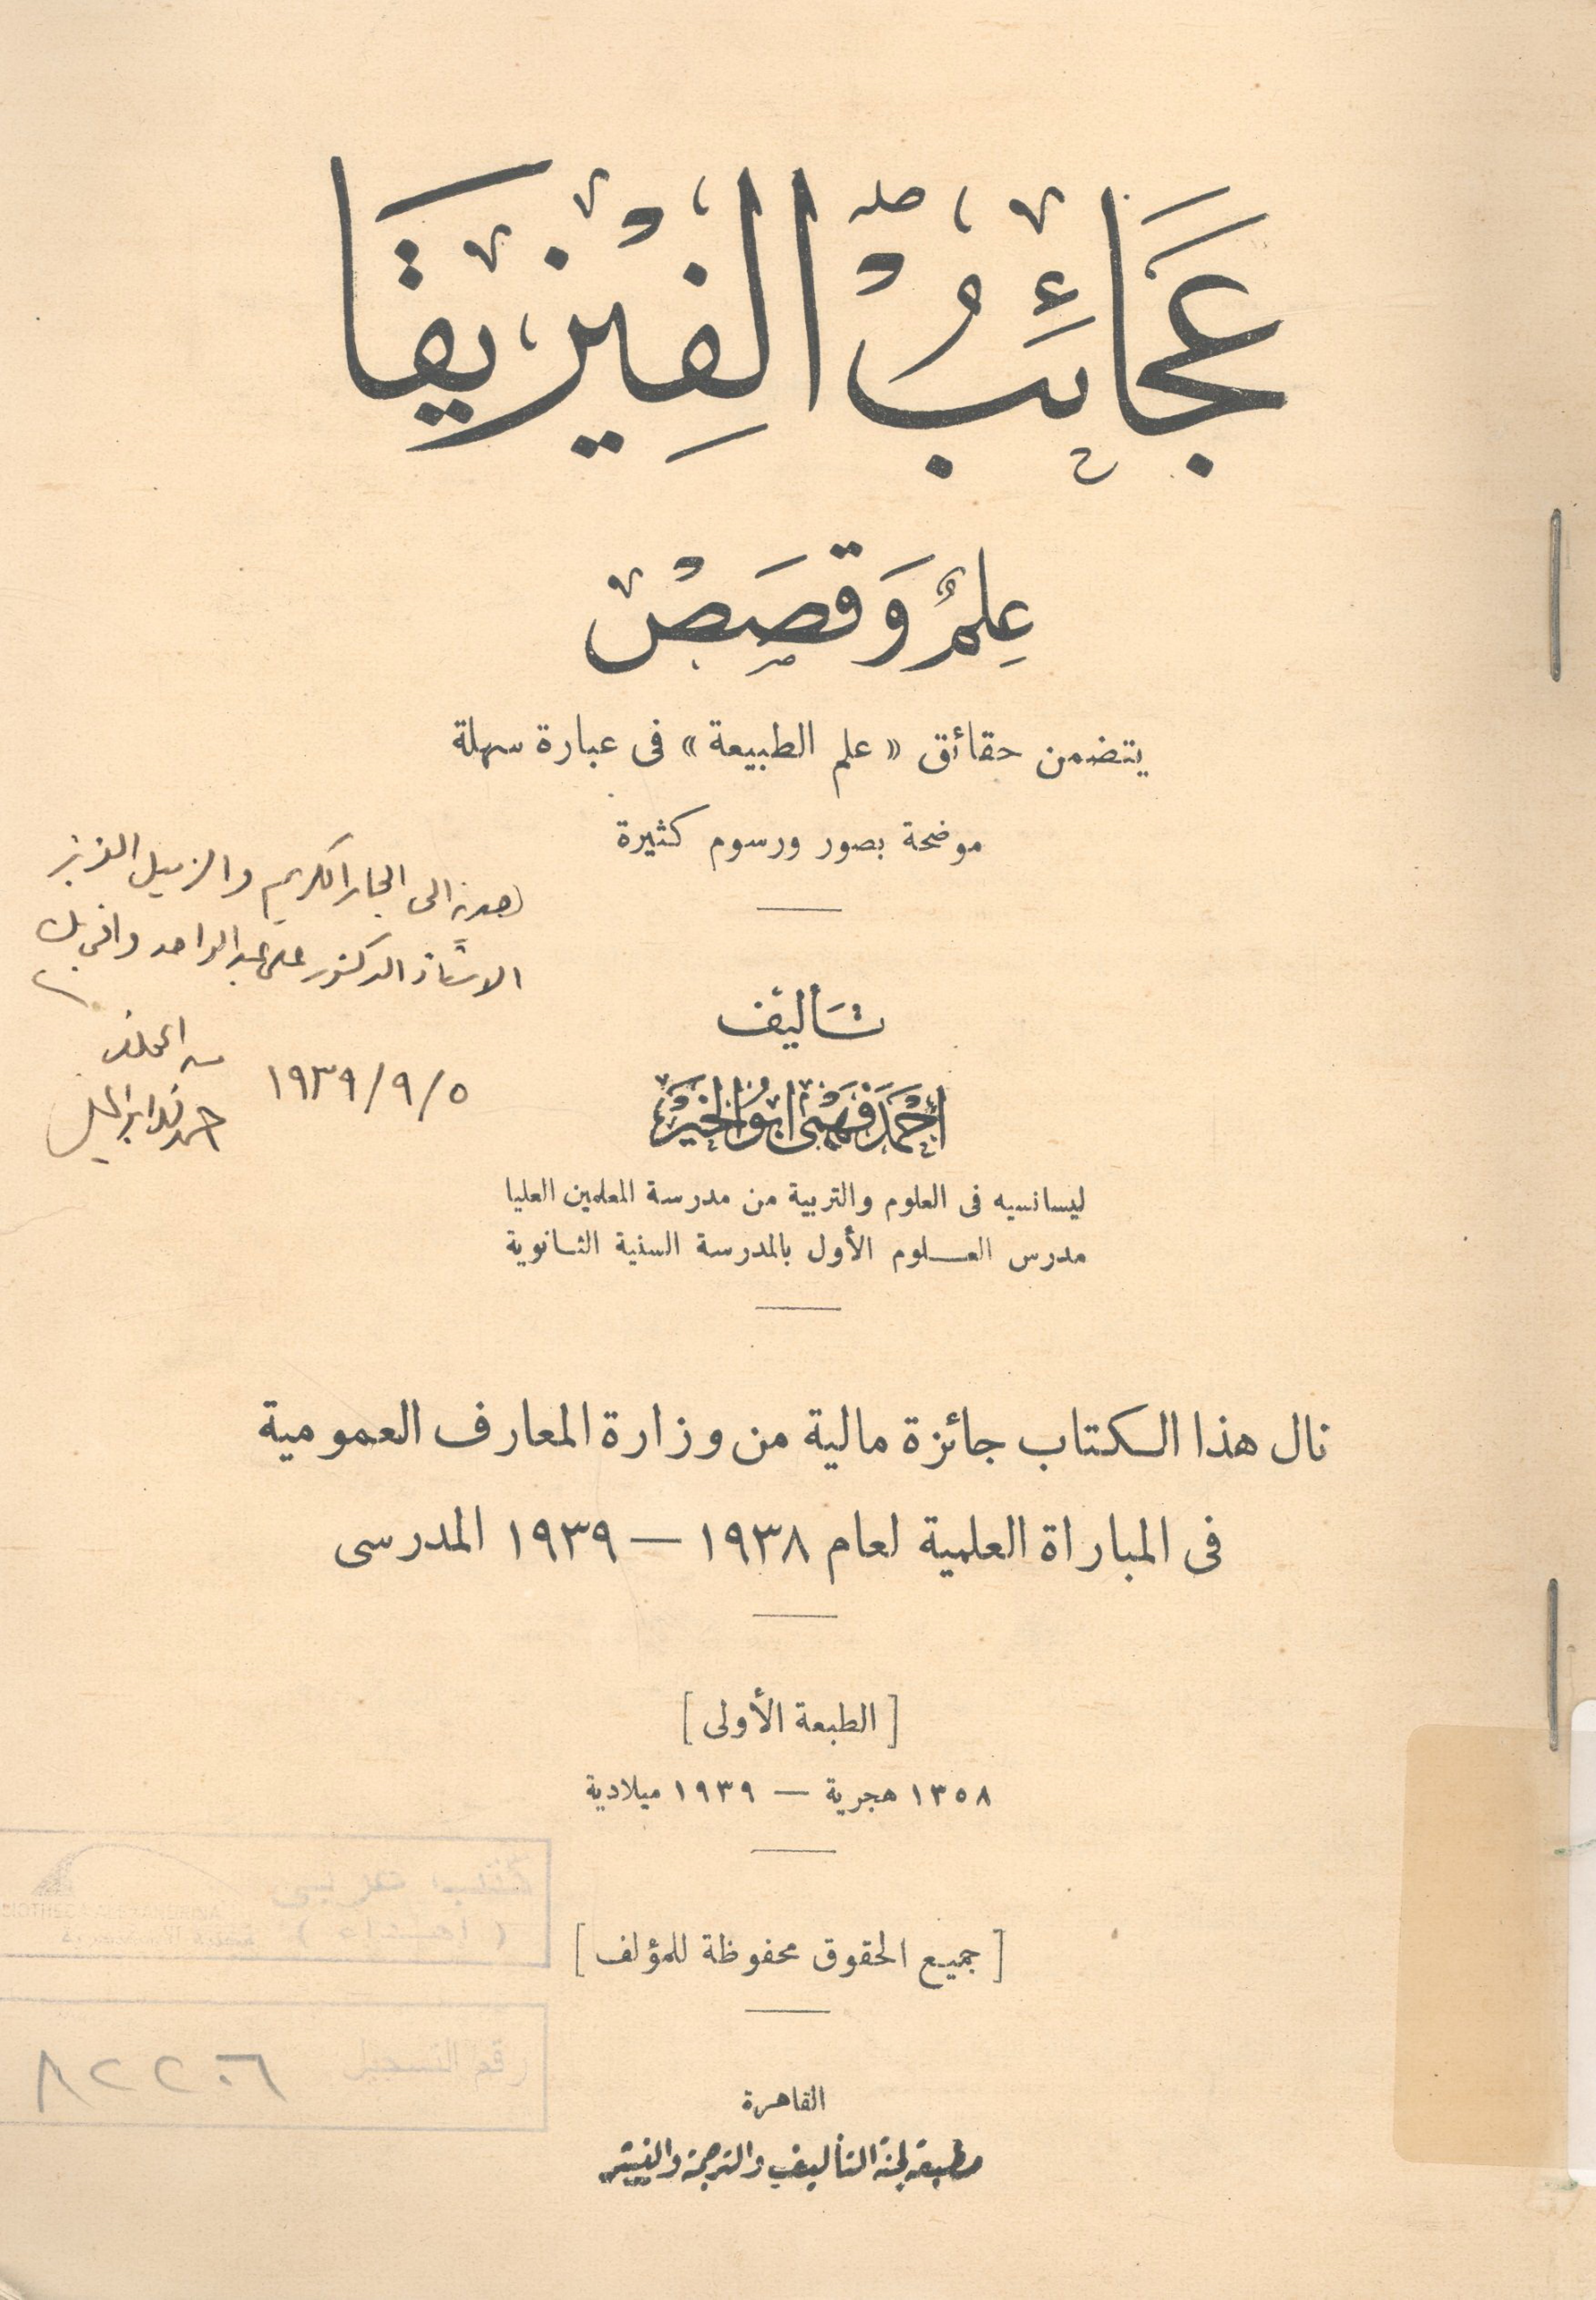 عَجَائِبُ الْفِيْزِيْقَا
عِلْمٌ وَقَصَصْ
يتضمن حقائق « علم الطبيعة » فى عبارة سهلة
موضحة بصور ورسوم كثيرة
هدية الى الجار الكريم والزميل العزيز
الاستاذ الدكتور على عبد الواحد وافى بك
من المخلص
١٩٣٩/٩/٥
تأليف
أحْمَد فَهْمى ابُو الخَيْر
ليسانسيه فى العلوم والتربية من مدرسة المعلمين العليا
مدرس العلوم الأول بالمدرسة السنية الثانوية
نال هذا الكتاب جائزة مالية من وزارة المعارف العمومية
فى المباراة العلمية لعام ١٩٣٨ — ١٩٣٩ المدرسى
[ الطبعة الأولى ]
١٣٥٨ هجرية — ١٩٣٩ ميلادية
[ جميع الحقوق محفوظة للمؤلف ]
رقم التسجيل
القاهرة
مطبعة لجنة التأليف والترجمة والنشر